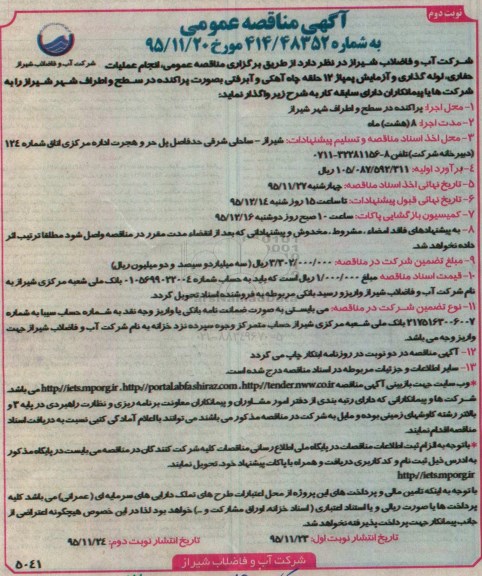 نوبت دوم
آگهی مناقصه عمومی
به شماره ۴۱۴/۴۸۳۵۲ مورخ ۹۵/۱۱/۲۰
شرکت آب و فاضلاب شیراز
شرکت آب و فاضلاب شیراز در نظر دارد از طریق برگزاری مناقصه عمومی، انجام عملیات
حفاری، لوله گذاری و آزمایش پمپاژ ۱۲ حلقه چاه آهکی و آبرفتی بصورت پراکنده در سطح و اطراف شهر شیراز را به
شرکت ها یا پیمانکاران دارای سابقه کار به شرح زیر واگذار نماید:
۱- محل اجرا: پراکنده در سطح و اطراف شهر شیراز
۲- مدت اجرا: ۸ (هشت) ماه
۳- محل اخذ اسناد مناقصه و تسلیم پیشنهادات: شیراز - ساحلی شرقی حدفاصل پل حر و هجرت اداره مرکزی اتاق شماره ۱۲۴
(دبیرخانه شرکت) تلفن ۸-۳۲۲۸۱۱۵۶-۰۷۱۱
۴- برآورد اولیه: ۱۰۵/۰۸۷/۵۹۲/۳۱۱ ریال
۵- تاریخ نهائی اخذ اسناد مناقصه: چهارشنبه ۹۵/۱۱/۲۷
۶- تاریخ نهائی قبول پیشنهادات: تا ساعت ۱۵ روز شنبه ۹۵/۱۲/۱۴
۷- کمیسیون بازگشایی پاکات: ساعت ۱۰ صبح روز دوشنبه ۹۵/۱۲/۱۶
۸- به پیشنهادهای فاقد امضاء، مشروط، مخدوش و پیشنهاداتی که بعد از انقضاء مدت مقرر در مناقصه واصل شود مطلقا ترتیب اثر
داده نخواهد شد.
۹- مبلغ تضمین شرکت در مناقصه: ۳/۳۰۲/۰۰۰/۰۰۰ ریال (سه میلیارد و سیصد و دو میلیون ریال)
۱۰- قیمت اسناد مناقصه مبلغ ۱/۰۰۰/۰۰۰ ریال است که باید به حساب شماره ۰۱۰۵۶۹۹۰۲۲۰۰۴ بانک ملی شعبه مرکزی شیراز به
نام شرکت آب و فاضلاب شیراز واریز و رسید بانکی مربوطه به فروشنده اسناد تحویل گردد.
۱۱- نوع تضمین شرکت در مناقصه: می بایستی به صورت ضمانت نامه بانکی یا واریز وجه نقد به شماره حساب سیبا به شماره
۲۱۷۵۱۶۳۰۰۶۰۰۷ بانک ملی شعبه مرکزی شیراز حساب متمرکز وجوه سپرده نزد خزانه به نام شرکت آب و فاضلاب شیراز جهت
واریز وجه می باشد.
۱۲- آگهی مناقصه در دو نوبت در روزنامه ابتکار چاپ می گردد
۱۳- سایر اطلاعات و جزئیات مربوطه در اسناد مناقصه درج شده است.
*وب سایت جهت بازبینی آگهی مناقصه http://iets.mporg.ir ,http://portal.abfashiraz.com ,http://tender.nww.co.ir می باشد.
شرکت ها و پیمانکارانی که دارای رتبه بندی از دفتر امور مشاوران و پیمانکاران معاونت برنامه ریزی و نظارت راهبردی در پایه ۳ و
بالاتر رشته کاوشهای زمینی بوده و مایل به شرکت در مناقصه مذکور می باشند می توانند با اعلام آمادگی کتبی نسبت به دریافت اسناد
مناقصه اقدام نمایند.
*با توجه به الزام ثبت اطلاعات مناقصات در پایگاه ملی اطلاع رسانی مناقصات کلیه شرکت کنندگان در مناقصه می بایست در پایگاه مذکور
به آدرس ذیل ثبت نام و کد کاربری دریافت و همراه با پاکات پیشنهاد خود، تحویل نمایند.
http://iets.mporg.ir
با توجه به اینکه تامین مالی و پرداخت های این پروژه از محل اعتبارات طرح های تملک دارایی های سرمایه ای (عمرانی) می باشد کلیه
پرداخت ها یا صورت ریالی و یا استناد اعتباری (اسناد خزانه، اوراق مشارکت و ..) خواهد بود لذا در این خصوص هیچگونه اعتراضی از
جانب پیمانکار جهت پرداخت پذیرفته نخواهد شد.
تاریخ انتشار نوبت اول: ۹۵/۱۱/۲۳ تاریخ انتشار نوبت دوم: ۹۵/۱۱/۲۴
شرکت آب و فاضلاب شیراز
۵۰۴۱